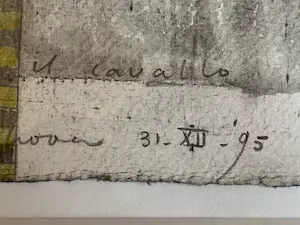 il cavallo
31-XII-95